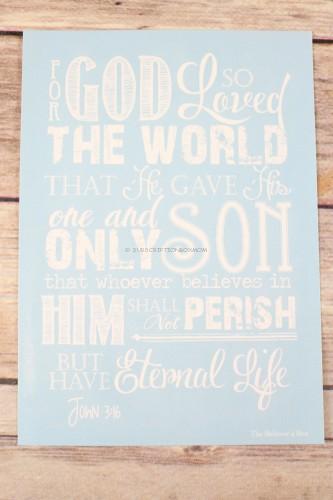 FOR GOD SO Loved
THE WORLD
THAT He GAVE His
one and SON
ONLY
© SUBSCRIPTIONBOXMOM
that whoever believes in
HIM SHALL Not PERISH
BUT HAVE Eternal Life
JOHN 3:16
The Believer's Box